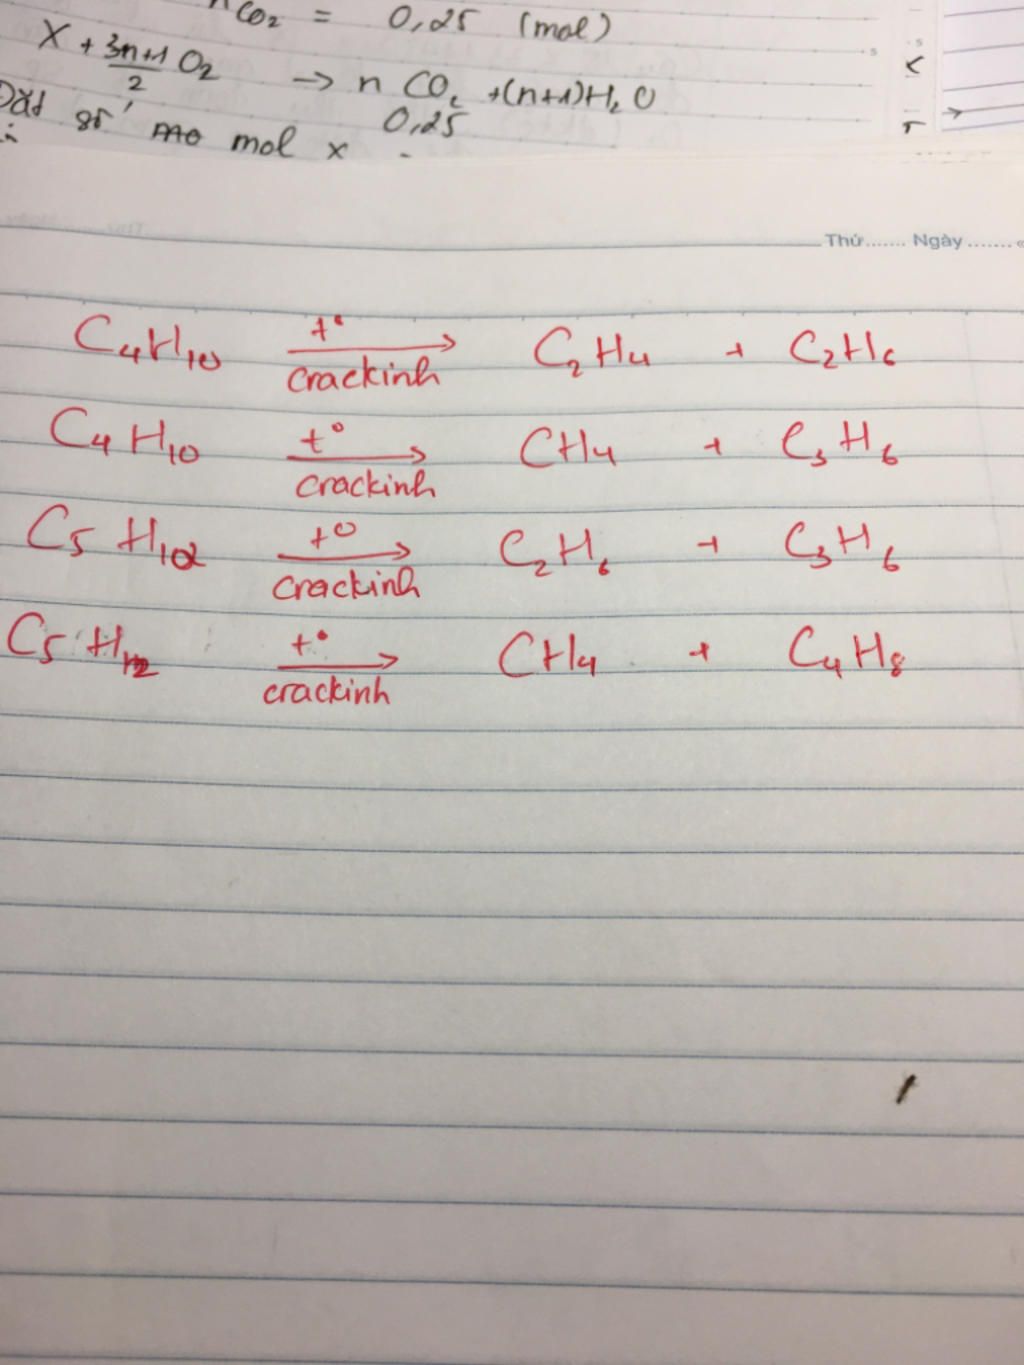 nCO₂ = 0,25 (mol)
X + 3n+1/2 O₂ → n CO₂ + (n+1)H₂O
0,25
Đặt số mol x
Thứ....... Ngày.......
C₄H₁₀ t° crackinh → C₂H₄ + C₂H₆
C₄H₁₀ t° crackinh → CH₄ + C₃H₆
C₅H₁₂ t° crackinh → C₂H₆ + C₃H₆
C₅H₁₂ t° crackinh → CH₄ + C₄H₈